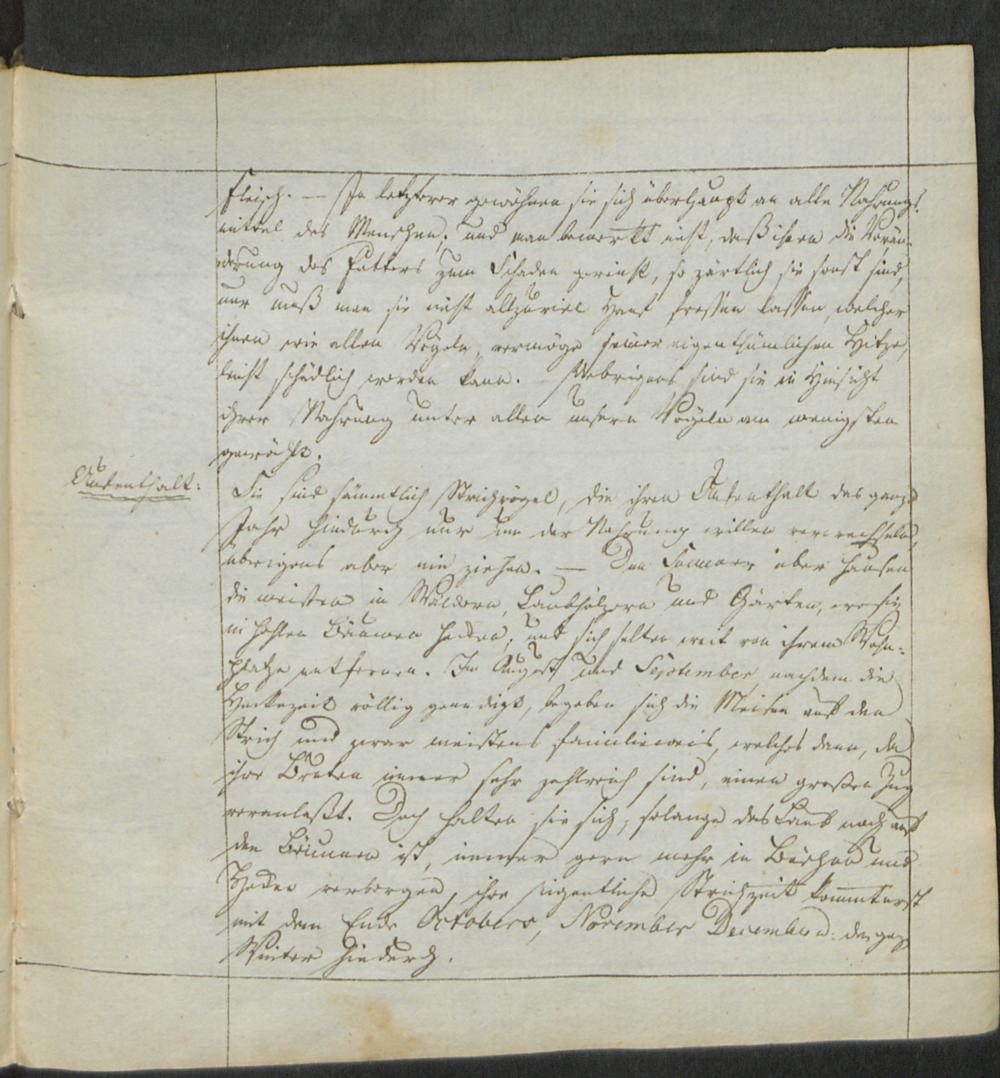 Fleisch. — In letzterer gewöhnen sie sich überhaupt an alle Nahrungs-
mittel des Menschen; und man bemerkt nicht, daß ihnen die Verän-
derung des Futters zum Schaden gereicht, so zärtlich sie sonst sind,
nur muß man sie nicht allzuviel Hanf fressen lassen, welcher
ihnen wie allen Vögeln, vermöge seiner eigenthümlichen Hitze,
leicht schädlich werden kann. Uebrigens sind sie in Hinsicht
ihrer Nahrung unter allen unsern Vögeln am wenigsten
gewählt.
Aufenthalt:
Sie sind sämmtlich Strichvögel, die ihren Aufenthalt das ganze
Jahr hindurch nur um der Nahrung willen verwechseln,
übrigens aber nie ziehen. — Den Sommer über hausen
die meisten in Wäldern, Laubhölzern und Gärten, wo sie
in hohlen Bäumen hecken, und sich selten weit von ihrem Wohn-
platze entfernen. Im August und September nachdem die
Heckezeit völlig geendigt, begeben sich die Meisen auf den
Strich und zwar meistens familienweis, welches dann, da
ihre Bruten immer sehr zahlreich sind, einen großen Zug
veranlaßt. Doch halten sie sich, solange das Laub noch auf
den Bäumen ist, immer gern mehr in Büschen und
Hecken verborgen, ihre eigentliche Strichzeit kommt erst
mit dem Ende Octobers, November December u. den ganzen
Winter hindurch.